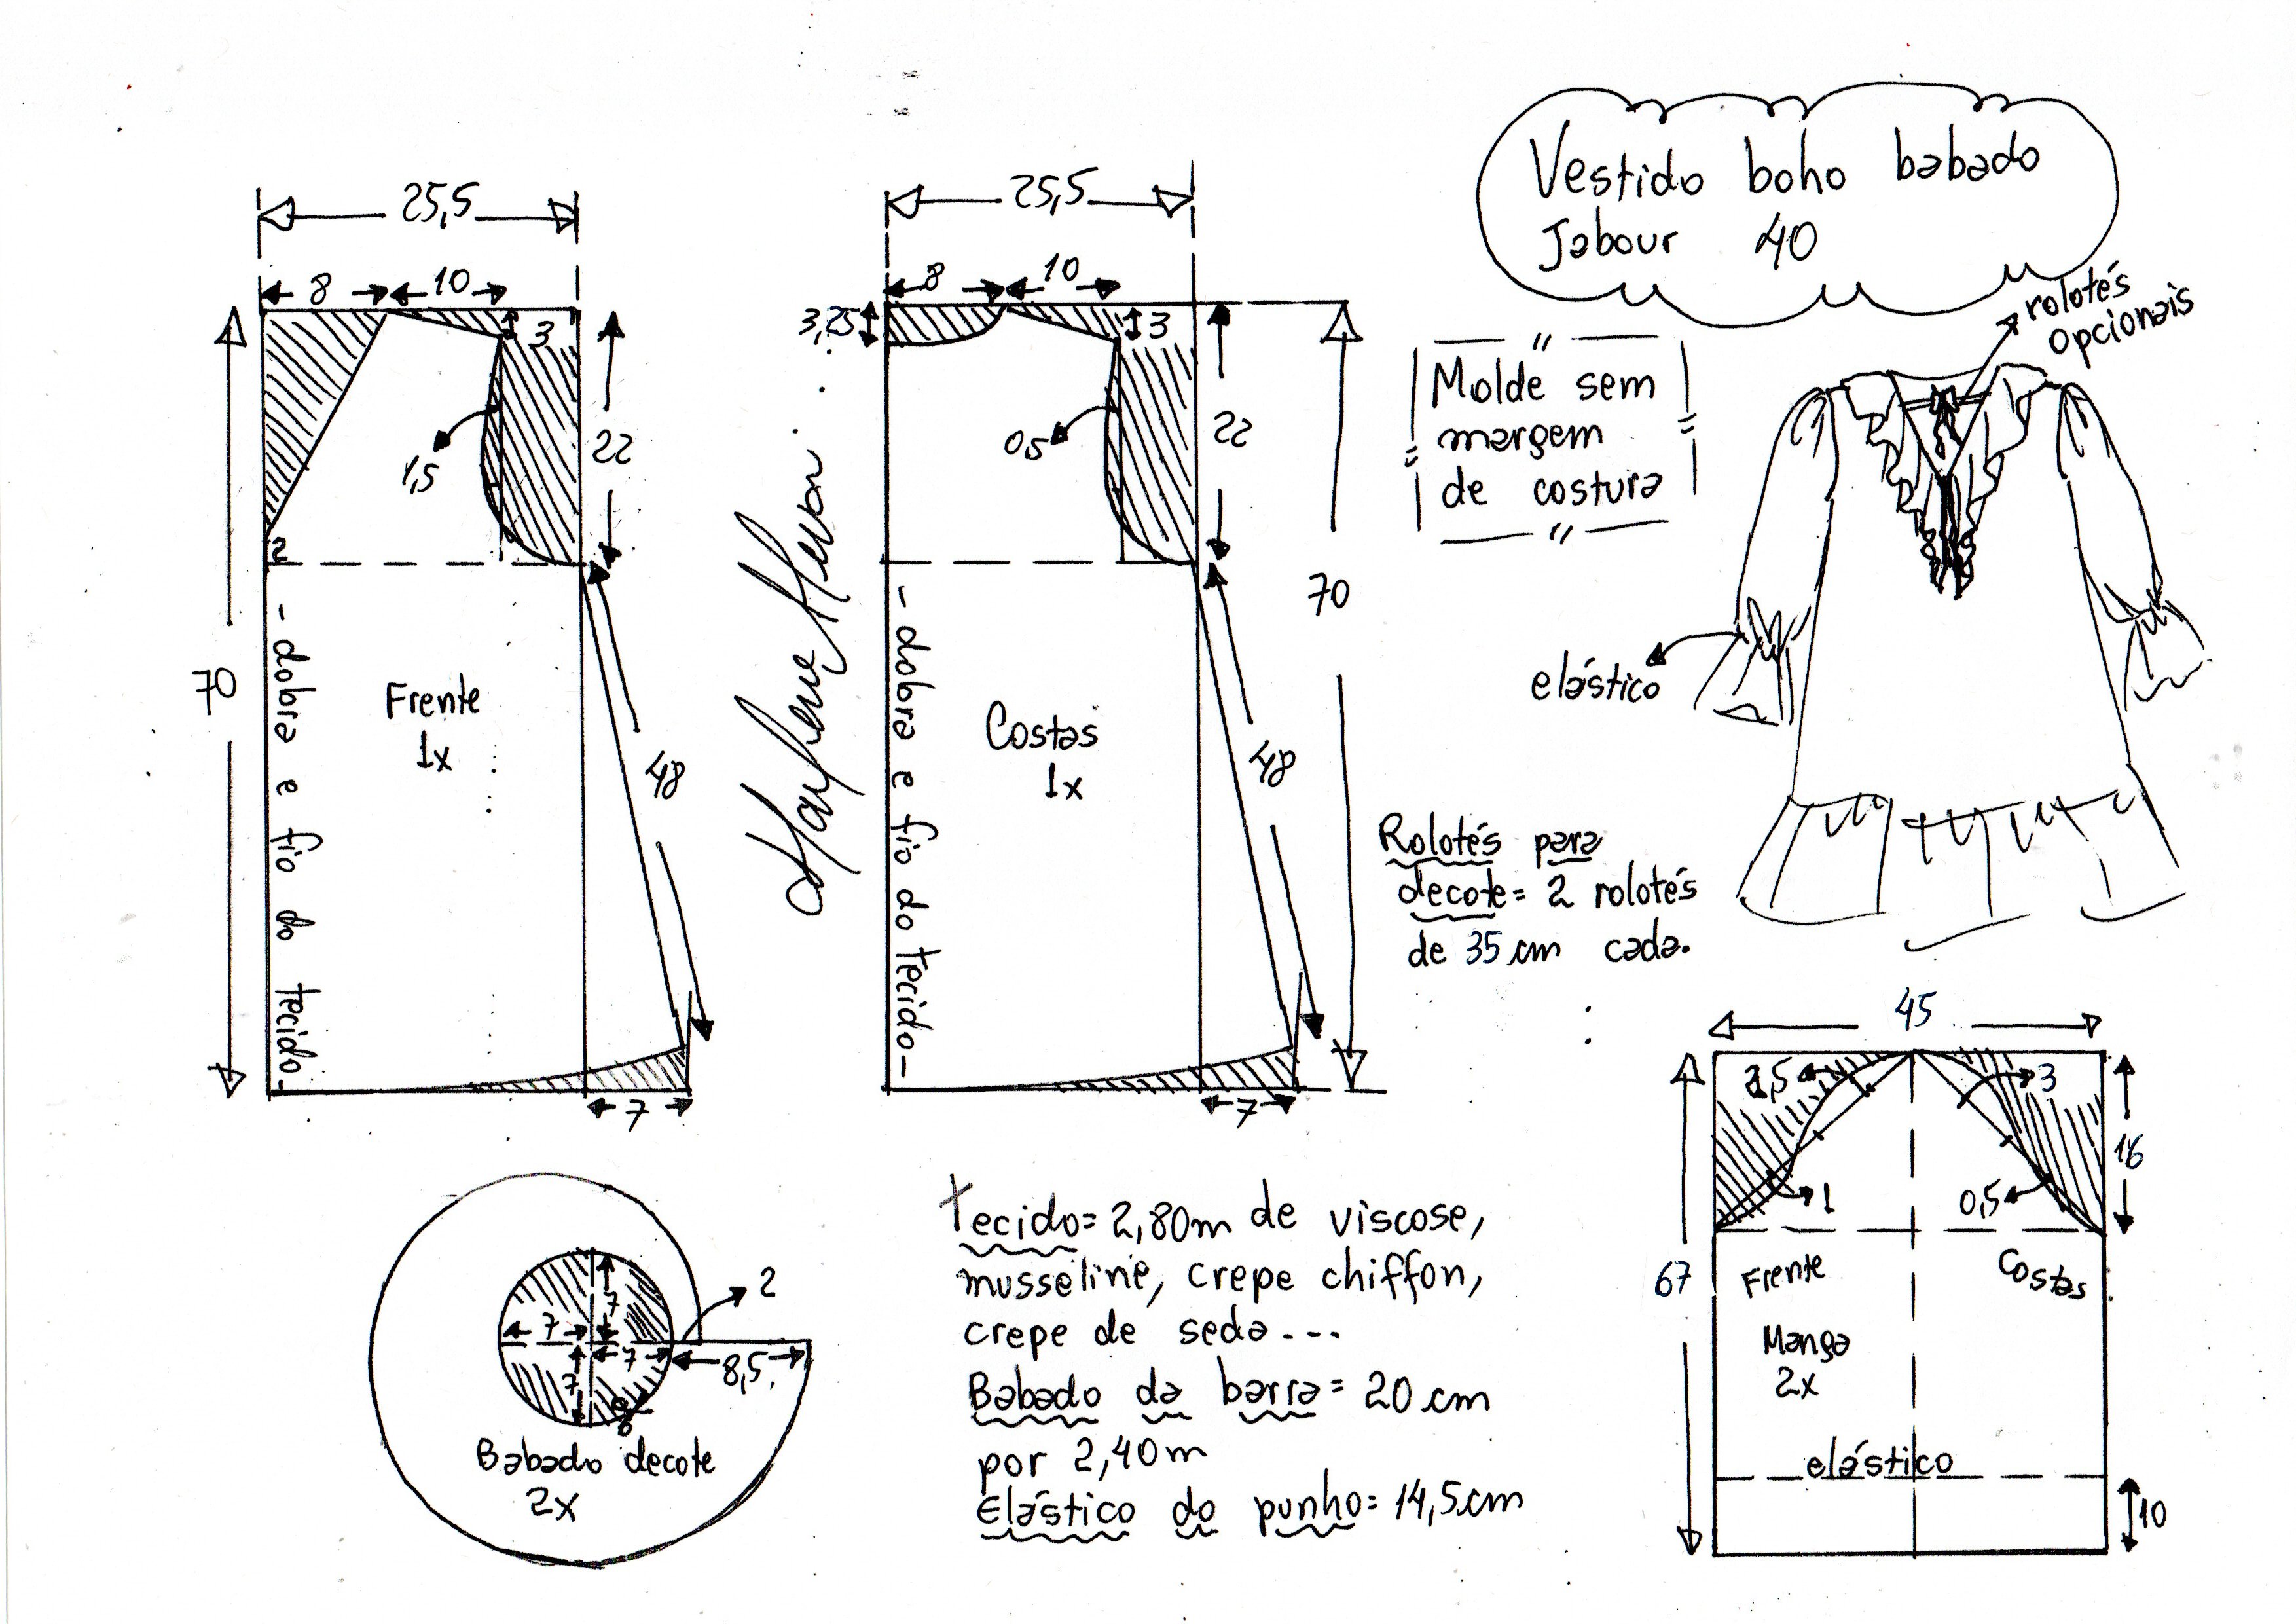 Vestido boho babado
Jabour 40
rolotés
opcionais
"
Molde sem
margem
de costura
"
elástico
Rolotés para
decote= 2 rolotés
de 35 cm cada.
25,5
8
10
3
22
1,5
2
70
48
7
- dobra e fio do tecido-
Frente
1x
25,5
8
10
3,25
3
22
0,5
70
48
7
- dobra e fio do tecido-
Costas
1x
2
7
7
7
7
8,5
Babado decote
2x
Tecido= 2,80m de viscose,
musseline, crepe chiffon,
crepe de seda...
Babado da barra= 20 cm
por 2,40m
Elástico do punho= 14,5cm
45
3
16
1
0,5
67
Frente
Costas
Manga
2x
elástico
10